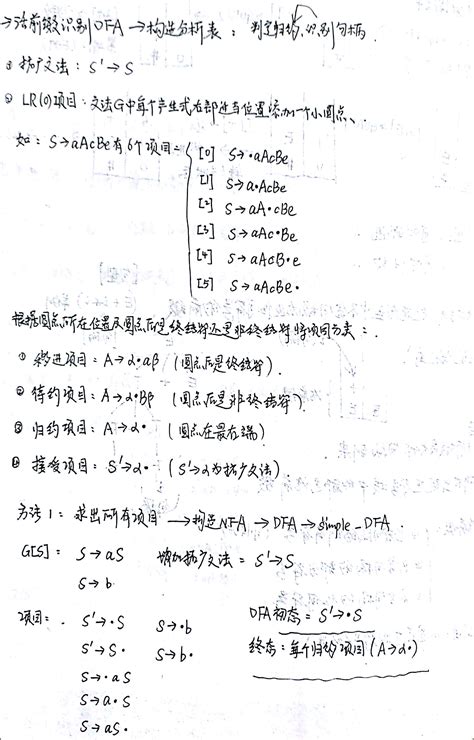 →活前缀识别DFA →构造分析表：判定归约,识别句柄.
① 拓广文法：S'→S
② LR(0)项目：文法G中每个产生式右部适当位置添加一个小圆点、
如：S→aAcBe有6个项目=
[0] S→·aAcBe
[1] S→a·AcBe
[2] S→aA·cBe
[3] S→aAc·Be
[4] S→aAcB·e
[5] S→aAcBe·
根据圆点所在位置及圆点后是终结符还是非终结符将项目分类：
① 移进项目：A→α·aβ （圆点后是终结符）.
② 待约项目：A→α·Bβ （圆点后是非终结符）.
③ 归约项目：A→α· （圆点在最右端）
④ 接受项目：S'→α· （S'→α为拓广文法）.
方法1：求出所有项目 →构造NFA →DFA →simple_DFA.
G[S]= S→aS 增加拓广文法= S'→S
S→b
项目：. S'→·S S→·b DFA初态= S'→·S
S'→S· S→b· 终态：每个归约项目（A→α·）
S→·aS
S→a·S
S→aS·